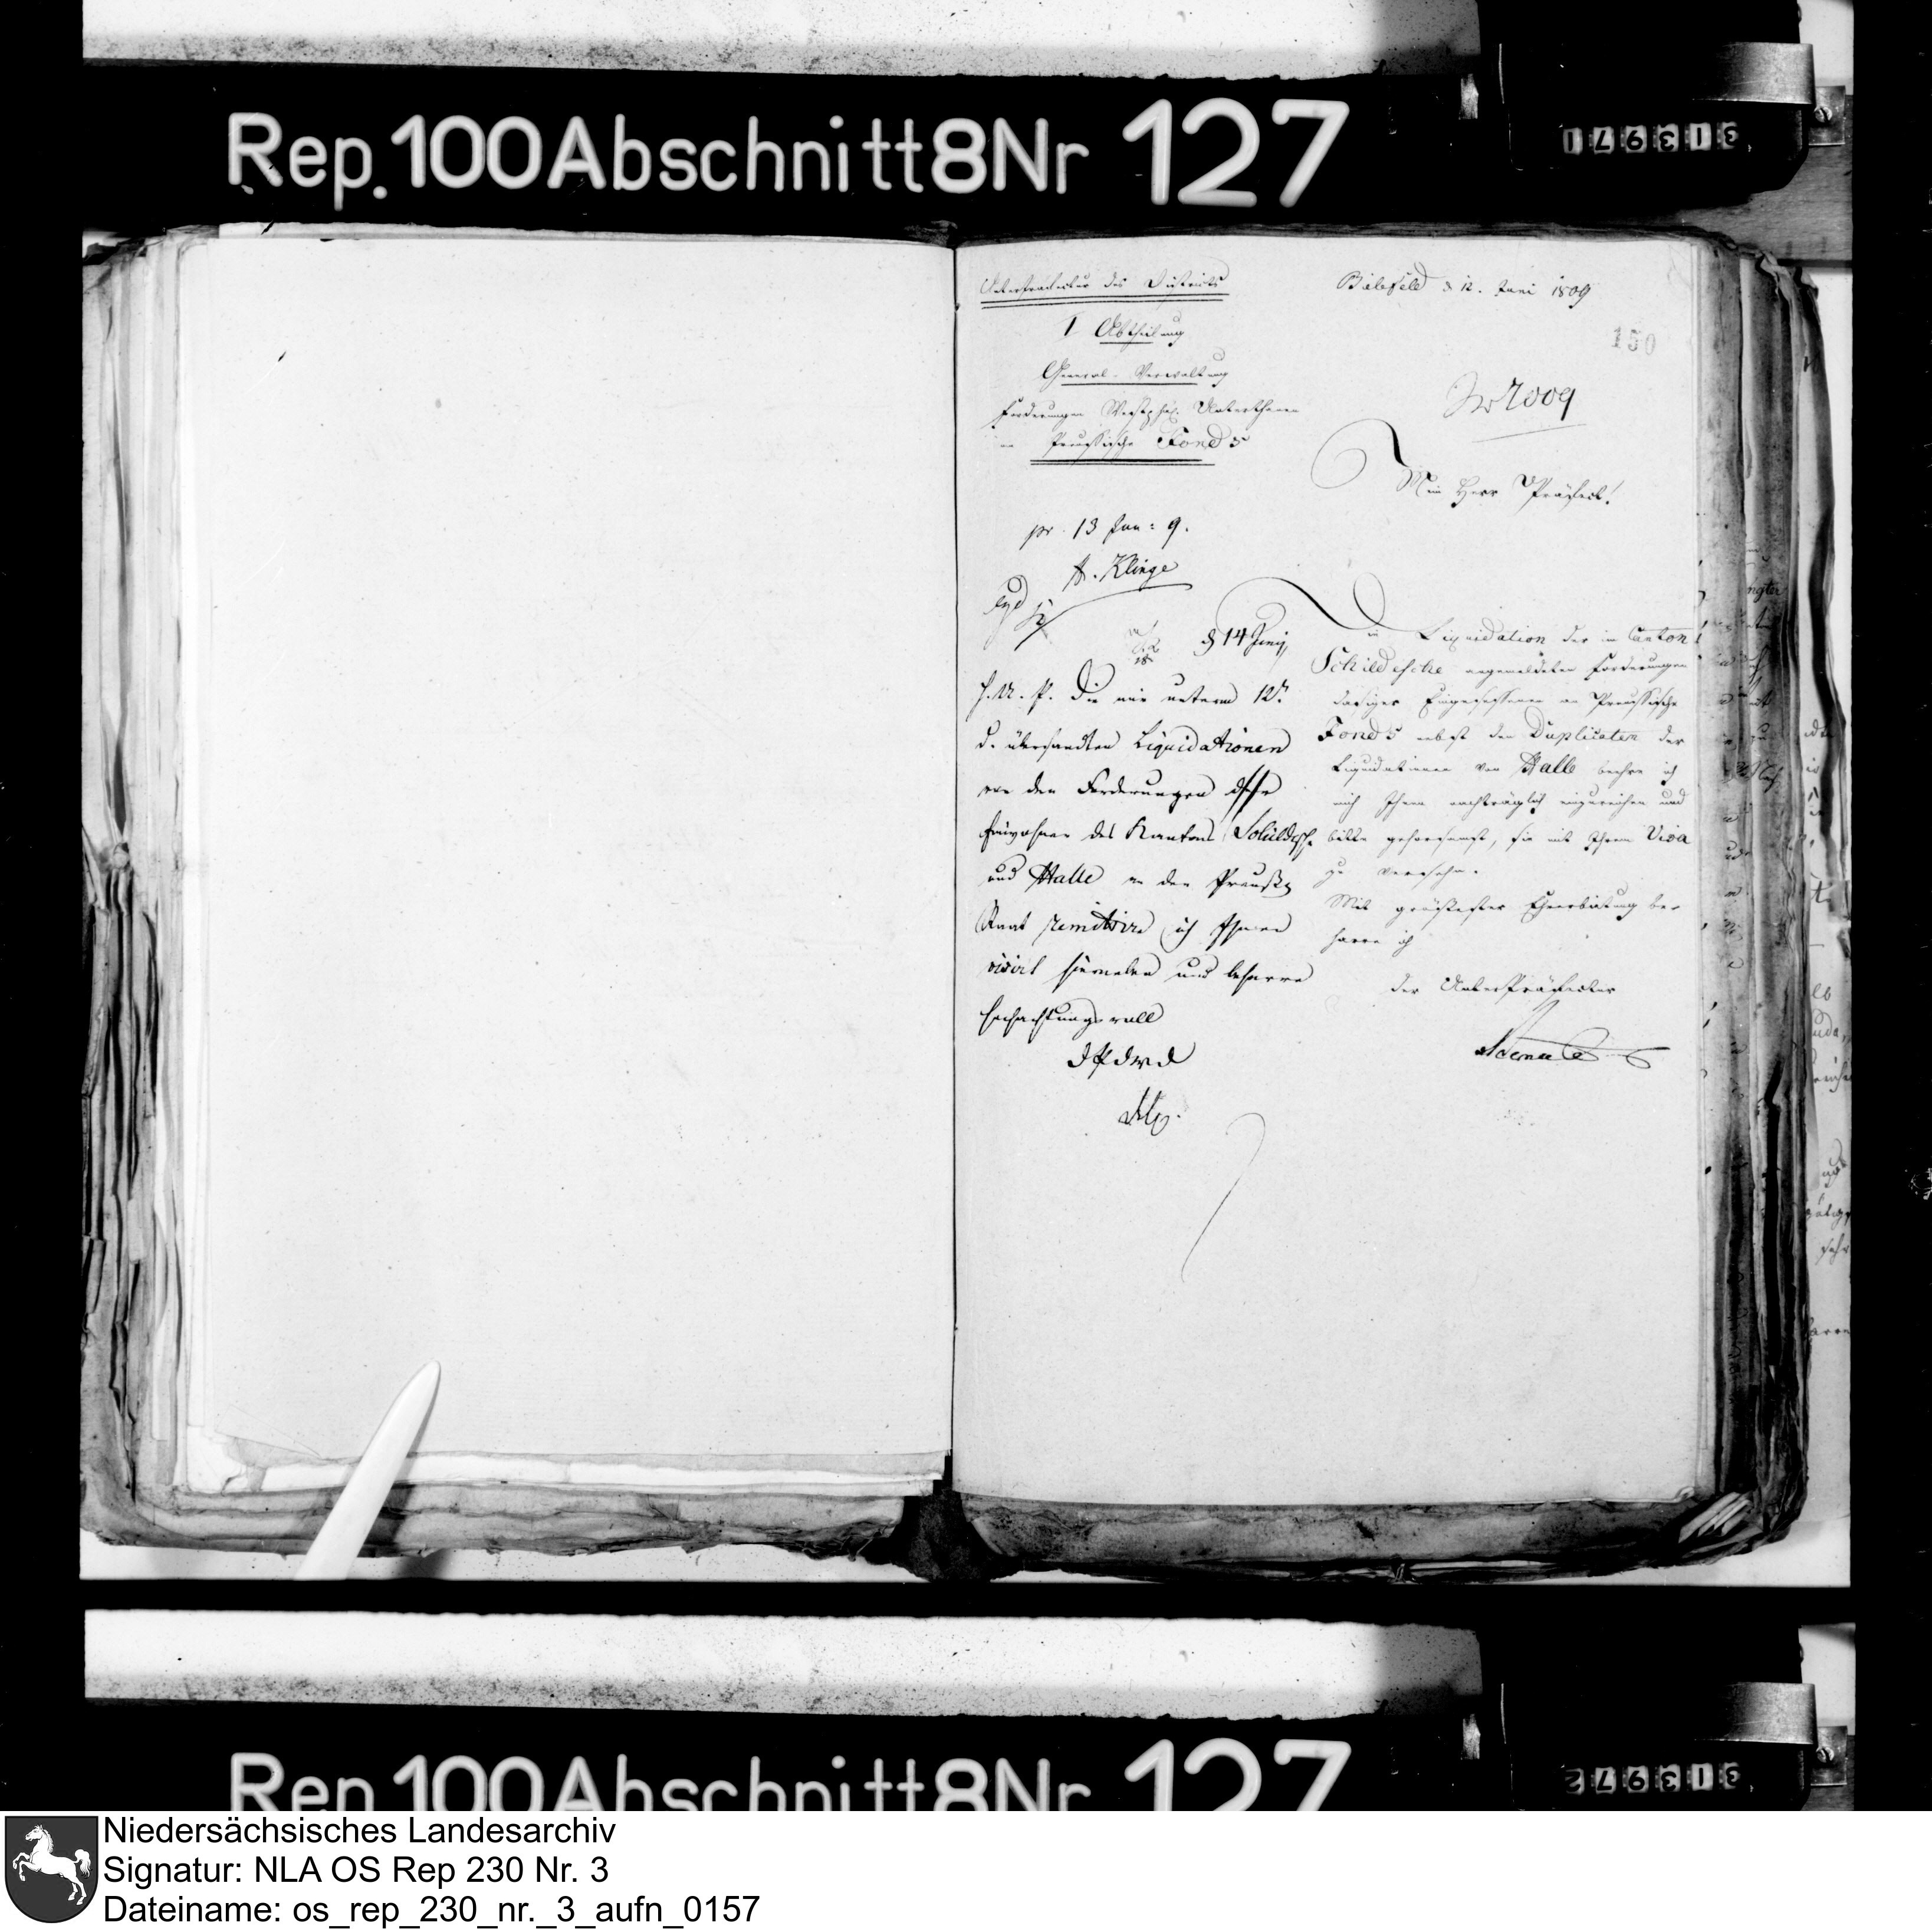 Rep. 100 Abschnitt 8 Nr 127
313971
Unterpraefectur des Districts
I Abtheilung
General-Verwaltung
Forderungen Westphäl. Unterthanen
an Preussische Fonds
Bielefeld d 12. Juni 1809
150
Nr 7009
Mein Herr Präfect!
pr. 13 Jun: 9.
A. Klinge
d 14 Junij
Die mir unterm 12t
d. übersandten Liquidationen
von den Forderungen
Einwohner des Kantons Schildesche
und Halle an den Preuß
Staat remittire ich Ihnen
visirt hierneben und beharre
hochachtungsvoll
Die Liquidation der im Canton
Schildesche angemeldeten Forderungen
dasiger Eingesessenen an Preussische
Fonds nebst den Duplicaten der
Liquidationen von Halle beehre ich
mich Ihnen nachträglich einzureichen und
bitte gehorsamst, sie mit Ihrem Visa
zu versehn.
Mit größester Ehrerbietung be-
harre ich
der UnterPräfect
Rep. 100 Abschnitt 8 Nr 127
313972
Niedersächsisches Landesarchiv
Signatur: NLA OS Rep 230 Nr. 3
Dateiname: os_rep_230_nr._3_aufn_0157